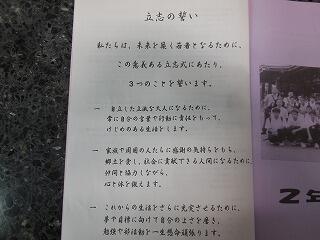 立志の誓い
私たちは、未来を築く若者となるために、
この意義ある立志式にあたり、
3つのことを誓います。
一 自立した立派な大人になるために、
常に自分の言葉や行動に責任をもって、
けじめのある生活をします。
一 家族や周囲の人たちに感謝の気持ちをもち、
郷土を愛し、社会に貢献できる人間になるために、
仲間と協力しながら、
心と体を鍛えます。
一 これからの生活をさらに充実させるために、
夢や目標に向けて自分のよさを磨き、
勉強や部活動を一生懸命頑張ります。
2年